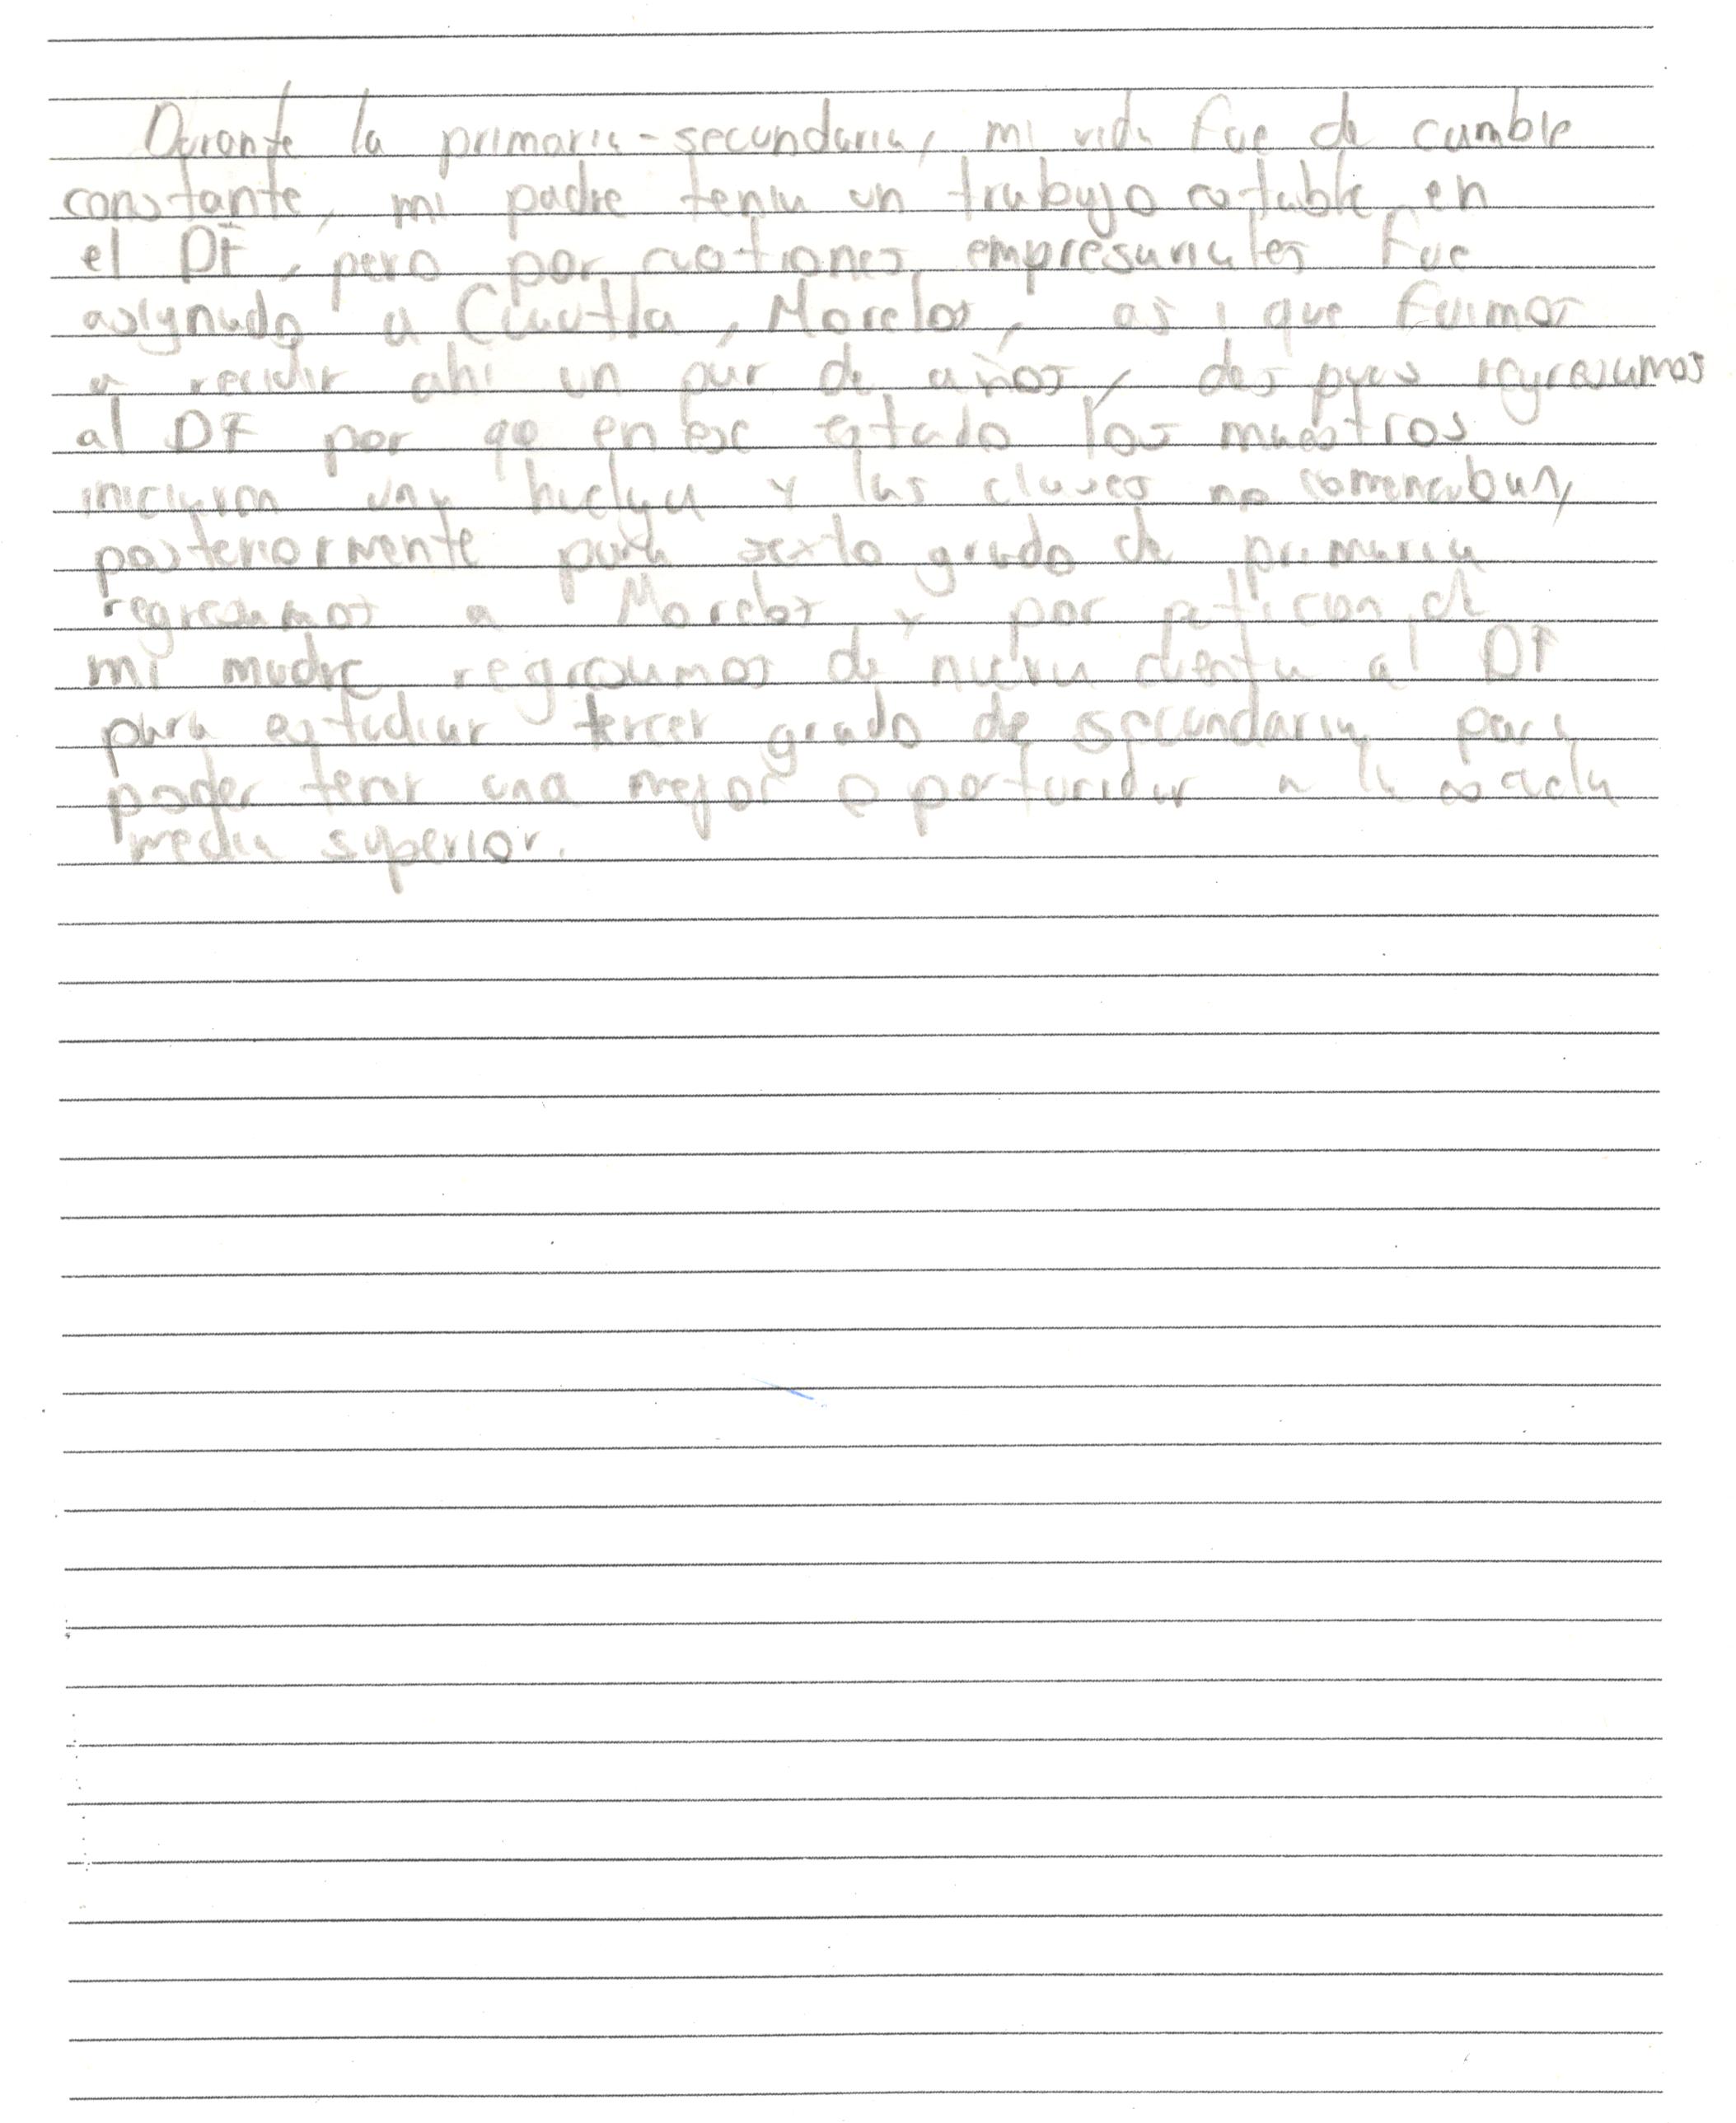 Durante la primaria-secundaria, mi vida fue de cambie
constante, mi padre tenia un trabajo estable en
el DF, pero por cuestiones empresariales fue
asignado a Cuautla, Morelos, asi que fuimos
a recidir ahi un par de años, des pues regresamos
al DF por qe en ese estado los maestros
iniciaron una huelga y las clases no comenzaban,
posteriormente para sexto grado de primaria
regresamos a Morelos y por peticion de
mi madre regresamos de nueva cuenta al DF
para estudiar tercer grado de secundaria para
poder tener una mejor oportunidar a la escuela
media superior.